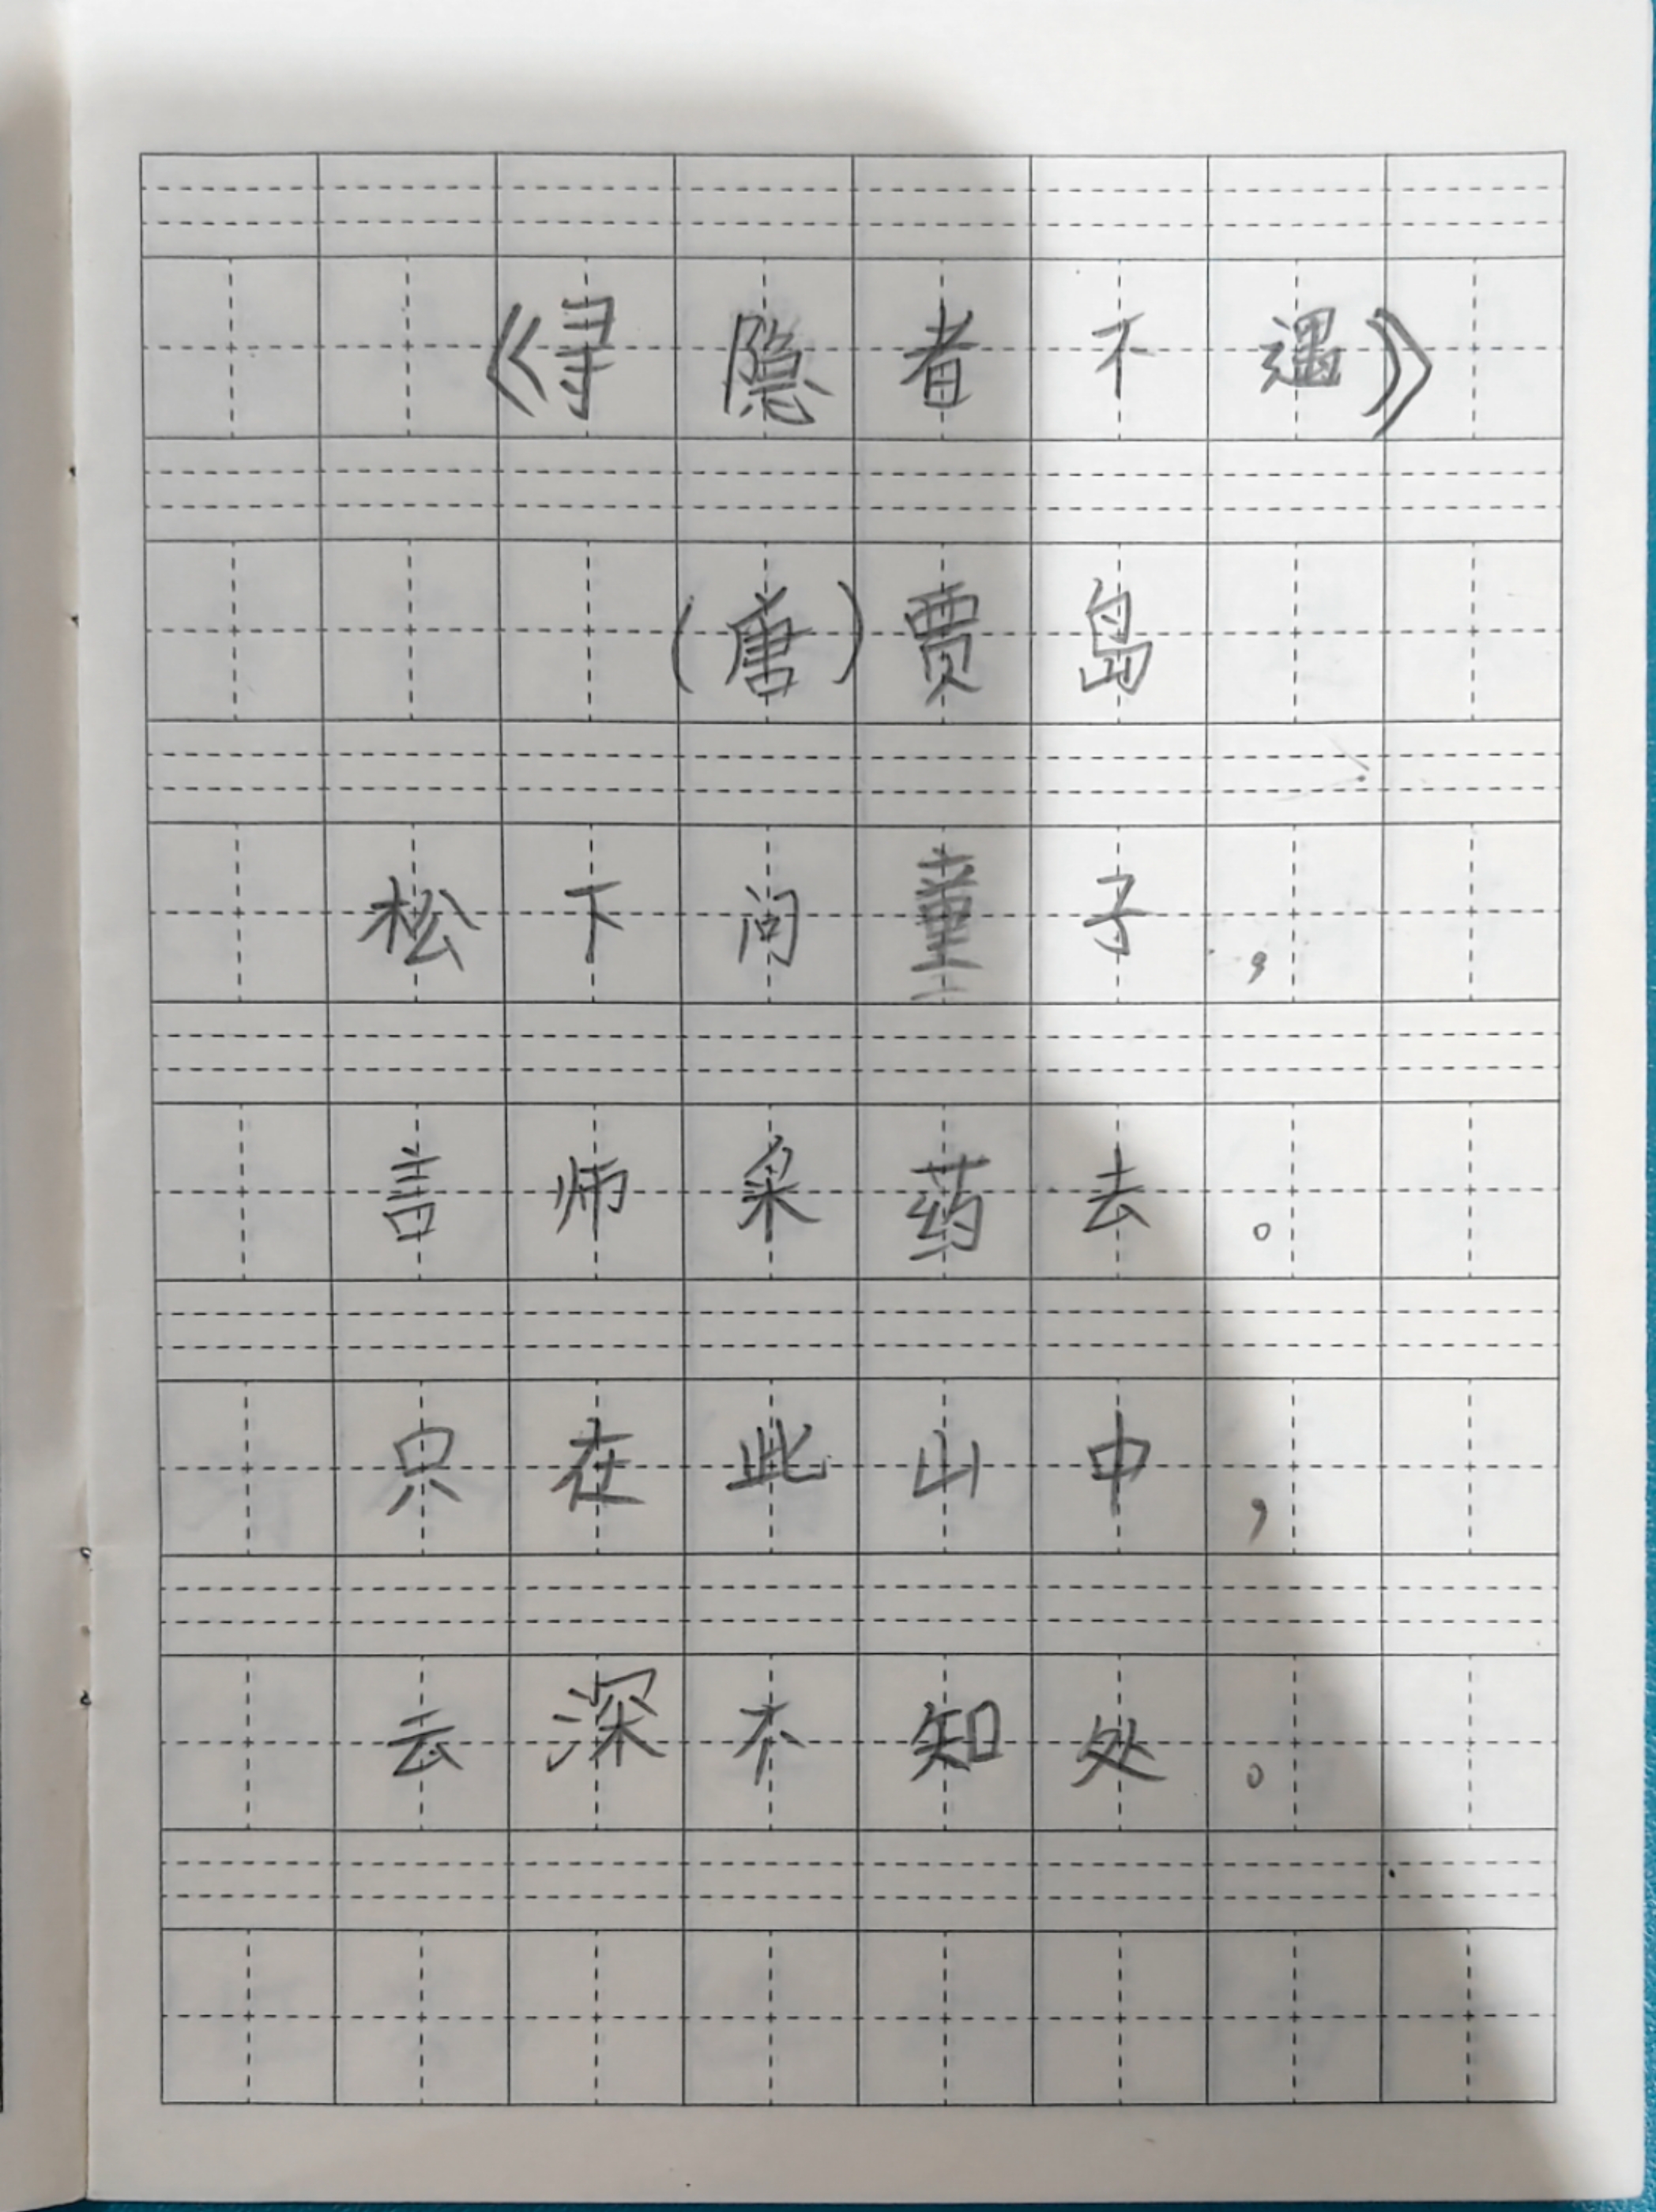 《寻隐者不遇》
（唐）贾岛
松下问童子，
言师采药去。
只在此山中，
云深不知处。